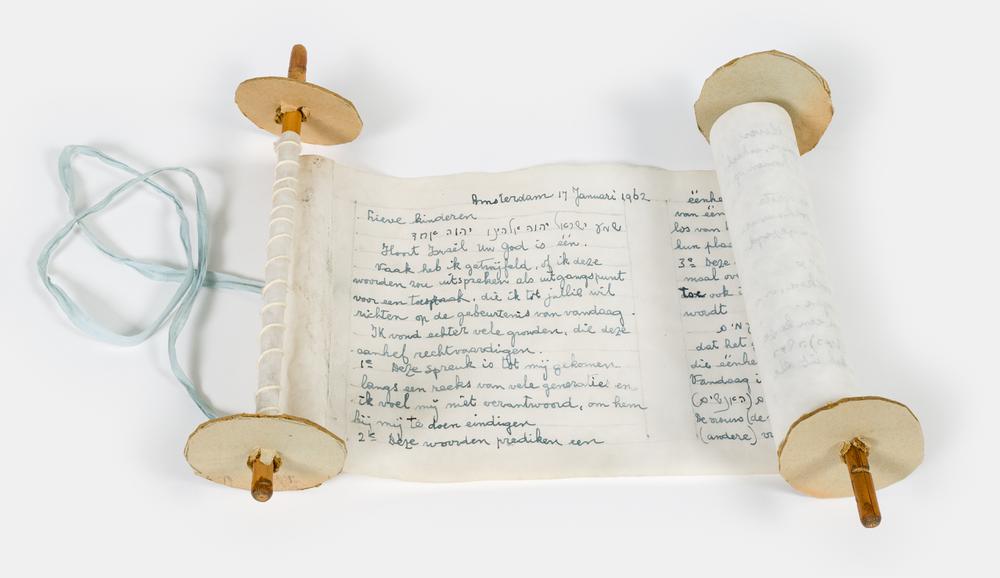 Amsterdam 17 Januari 1962
Lieve kinderen
שמע ישראל יהוה אלהינו יהוה אחד
Hoort Israël Uw God is één.
Vaak heb ik getwijfeld, of ik deze
woorden zou uitspreken als uitgangspunt
voor een toespraak, die ik tot jullie wil
richten op de gebeurtenis van vandaag.
Ik vond echter vele gronden, die deze
aanhef rechtvaardigen.
1e Deze spreuk is tot mij gekomen
langs een reeks van vele generaties en
ik voel mij niet verantwoord, om hem
bij mij te doen eindigen
2e Deze woorden prediken een
éénhe
van één
los van
hun plaa
3e Deze
maal ov
toe ook i
wordt
dat het
die éénhe
Vandaag i
(האנשים)
De mens (de
(andere) v